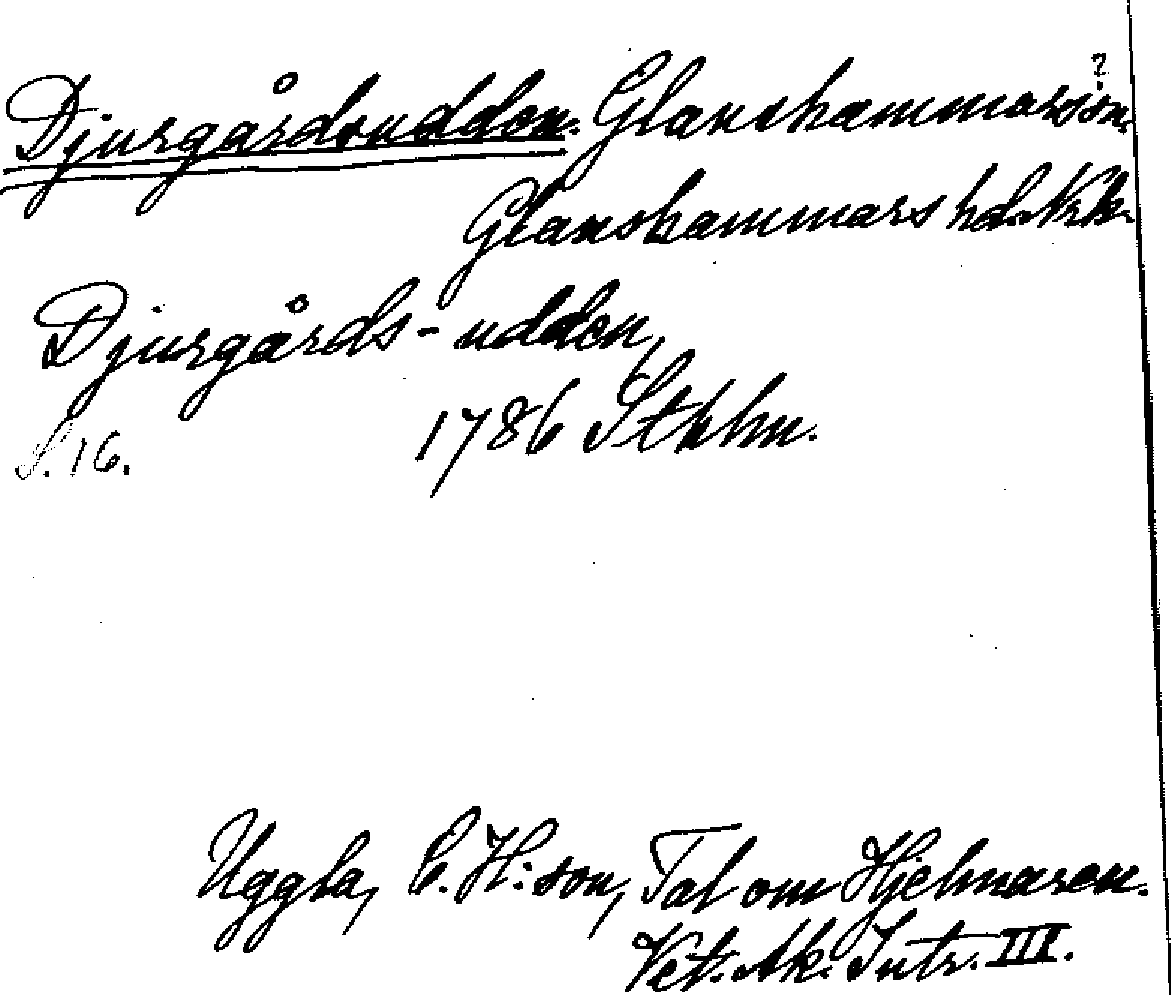 Djurgårdsudden. Glanshammars sn. ?
Glanshammars hd. Nrk.
Djurgårds-udden,
S. 16. 1786 Stkhm.
Uggla, C. H:son, Tal om Hjelmaren.
Vet. Ak. Intr. III.